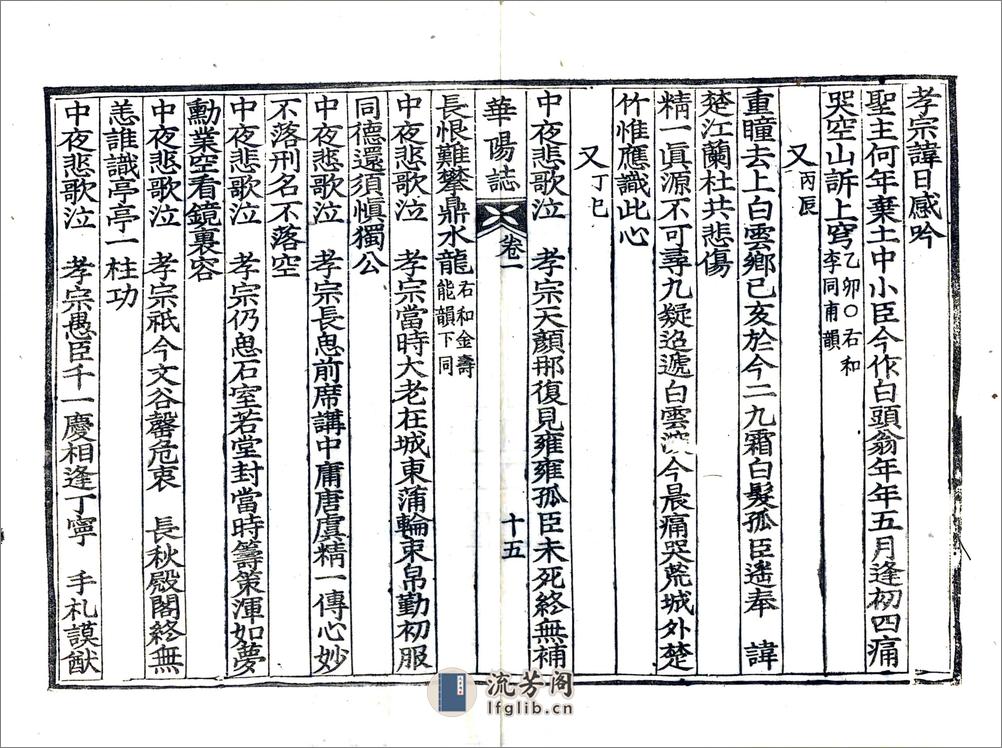 孝宗諱日感吟
聖主何年棄土中小臣今作白頭翁年年五月逢初四痛
哭空山訴上穹乙卯○右和
李同甫韻
又丙辰
重瞳去上白雲鄉已亥於今二九霜白髮孤臣遙奉　諱
楚江蘭杜共悲傷
精一眞源不可尋九疑迢遞白雲深今晨痛哭荒城外楚
竹惟應識此心
又丁巳
中夜悲歌泣　孝宗天顏那復見雍雍孤臣未死終無補
華陽誌
卷一
十五
長恨難攀鼎水龍右和金壽
能韻下同
中夜悲歌泣　孝宗當時大老在城東蒲輪束帛勤初服
同德還須愼獨公
中夜悲歌泣　孝宗長思前席講中庸唐虞精一傳心妙
不落刑名不落空
中夜悲歌泣　孝宗仍思石室若堂封當時籌策渾如夢
勳業空看鏡裏容
中夜悲歌泣　孝宗祇今文谷罄危衷　長秋殿閣終無
恙誰識亭亭一柱功
中夜悲歌泣　孝宗愚臣千一慶相逢丁寧　手札謨猷
流芳阁
lfglib.cn